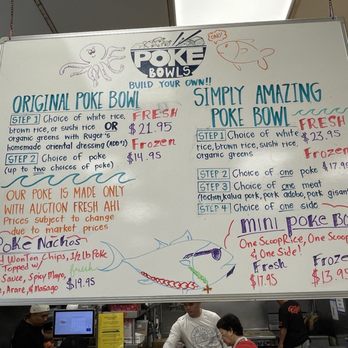 POKE
BOWLS
BUILD YOUR OWN!!
ORIGINAL POKE BOWL
STEP 1 Choice of white rice,
brown rice, or sushi rice OR
organic greens with Ruger's
homemade oriental dressing
STEP 2 Choice of poke
(up to two choices of poke)
FRESH
$21.95
Frozen
$14.95
OUR POKE IS MADE ONLY
WITH AUCTION FRESH AHI
Prices subject to change
due to market prices
Poke Nachos
Wonton Chips, 1/2 lb Poke
Topped w/
Sauce, Spicy Mayo,
Arare, & Masago
fresh
$19.95
SIMPLY AMAZING
POKE BOWL
STEP 1 Choice of white
rice, brown rice, sushi rice,
organic greens
STEP 2 Choice of one poke
STEP 3 Choice of one meat
(lechon, kalua pork, pork adobo, pork gisantes)
STEP 4 Choice of one side
FRESH
$23.95
Frozen
$17.95
mini POKE BOWL
One Scoop Rice, One Scoop
& One Side!
Fresh
$17.95
Frozen
$13.95